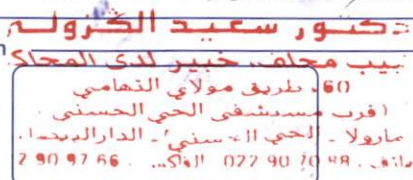 دكتور سعيد الكزولي
طبيب محلف، خبير لدى المحاكم
60، طريق مولاي التهامي
(قرب مستشفى الحي الحسني
مارولا - الحي الحسني - الدار البيضاء.
هاتف. 022 90 70 88 الفاكس.